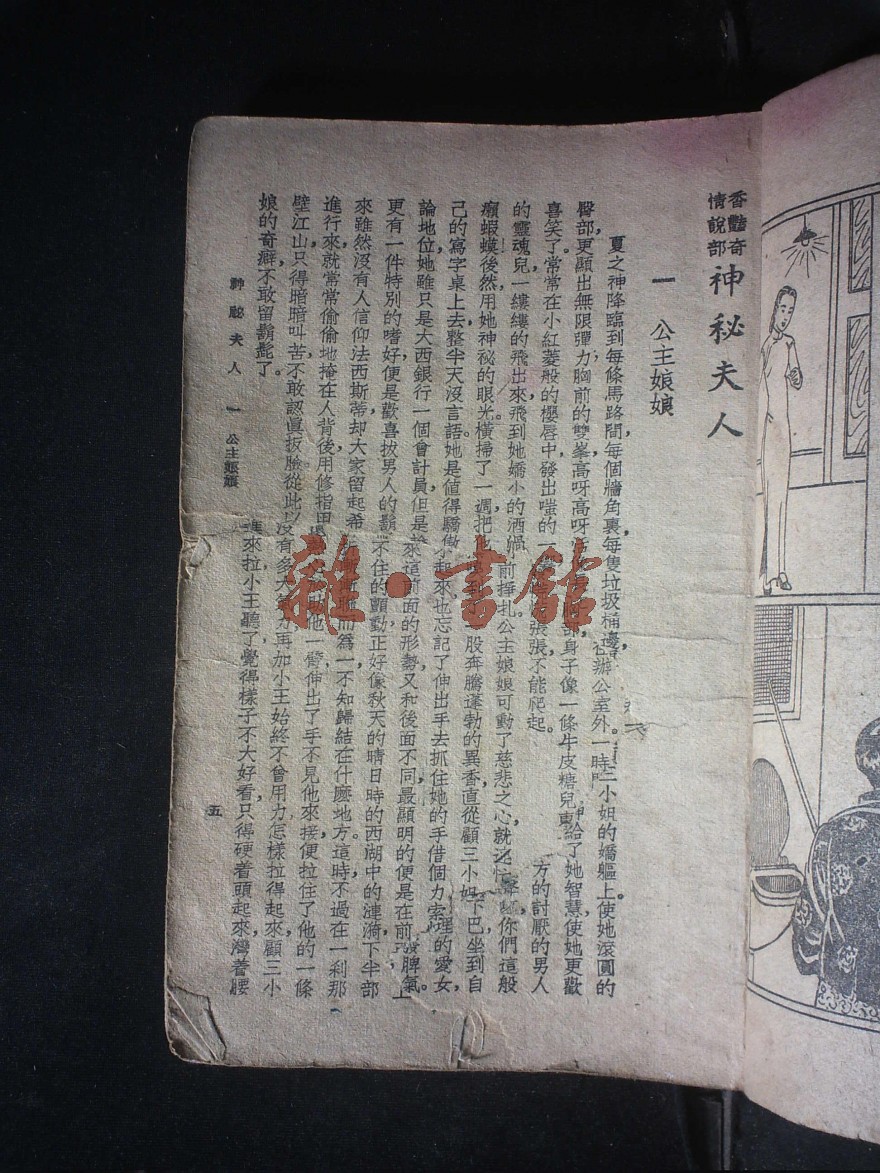 香豔奇
情說部
神秘夫人
一 公主娘娘
夏之神降臨到每條馬路間每個牆角裏每隻垃圾桶邊 在辦公室外一時 三小姐的嬌軀上使她滾圓的
臀部更顯出無限彈力胸前的雙峯高呀高呀 身子像一條牛皮糖兒 給了她智慧使她更歡
喜笑了常常在小紅菱般的櫻唇中發出嗤的一 張張不能爬起 方的討厭的男人
的靈魂兒一縷縷的飛出來飛到她嬌小的酒渦前掙扎公主娘娘可動了慈悲之心就 你們這般
癩蝦蟆後然用她神祕的眼光橫掃了一週把 一股奔騰蓬勃的異香直從顧三小姐下巴坐到自
己的寫字桌上去整半天沒言語她是値得驕傲 起來也忘記了伸出手去抓住她的手借個力 理的愛女
論地位她雖只是大西銀行一個會計員但是 來這前面的形勢又和後面不同最顯明的便是在前 脾氣上
更有一件特別的嗜好便是歡喜拔男人的鬍 不住的顫動正好像秋天的晴日時的西湖中的漣漪下半部
來雖然沒有人信仰法西斯蒂却大家留起希 而爲一不知歸結在什麽地方這時不過在一刹那
進行來就常常偷偷地掩在人背後用修指甲 他一臂伸出了手不見他來接便拉住了他的一條
壁江山只得暗暗叫苦不敢認眞扳臉從此以 沒有多大 再加小王始終不曾用力怎樣拉得起來顧三小
娘的奇癖不敢留鬍髭了 來拉小王聽了覺得樣子不大好看只得硬着頭起來灣着腰
神秘夫人 一 公主娘娘
五
雜·書館